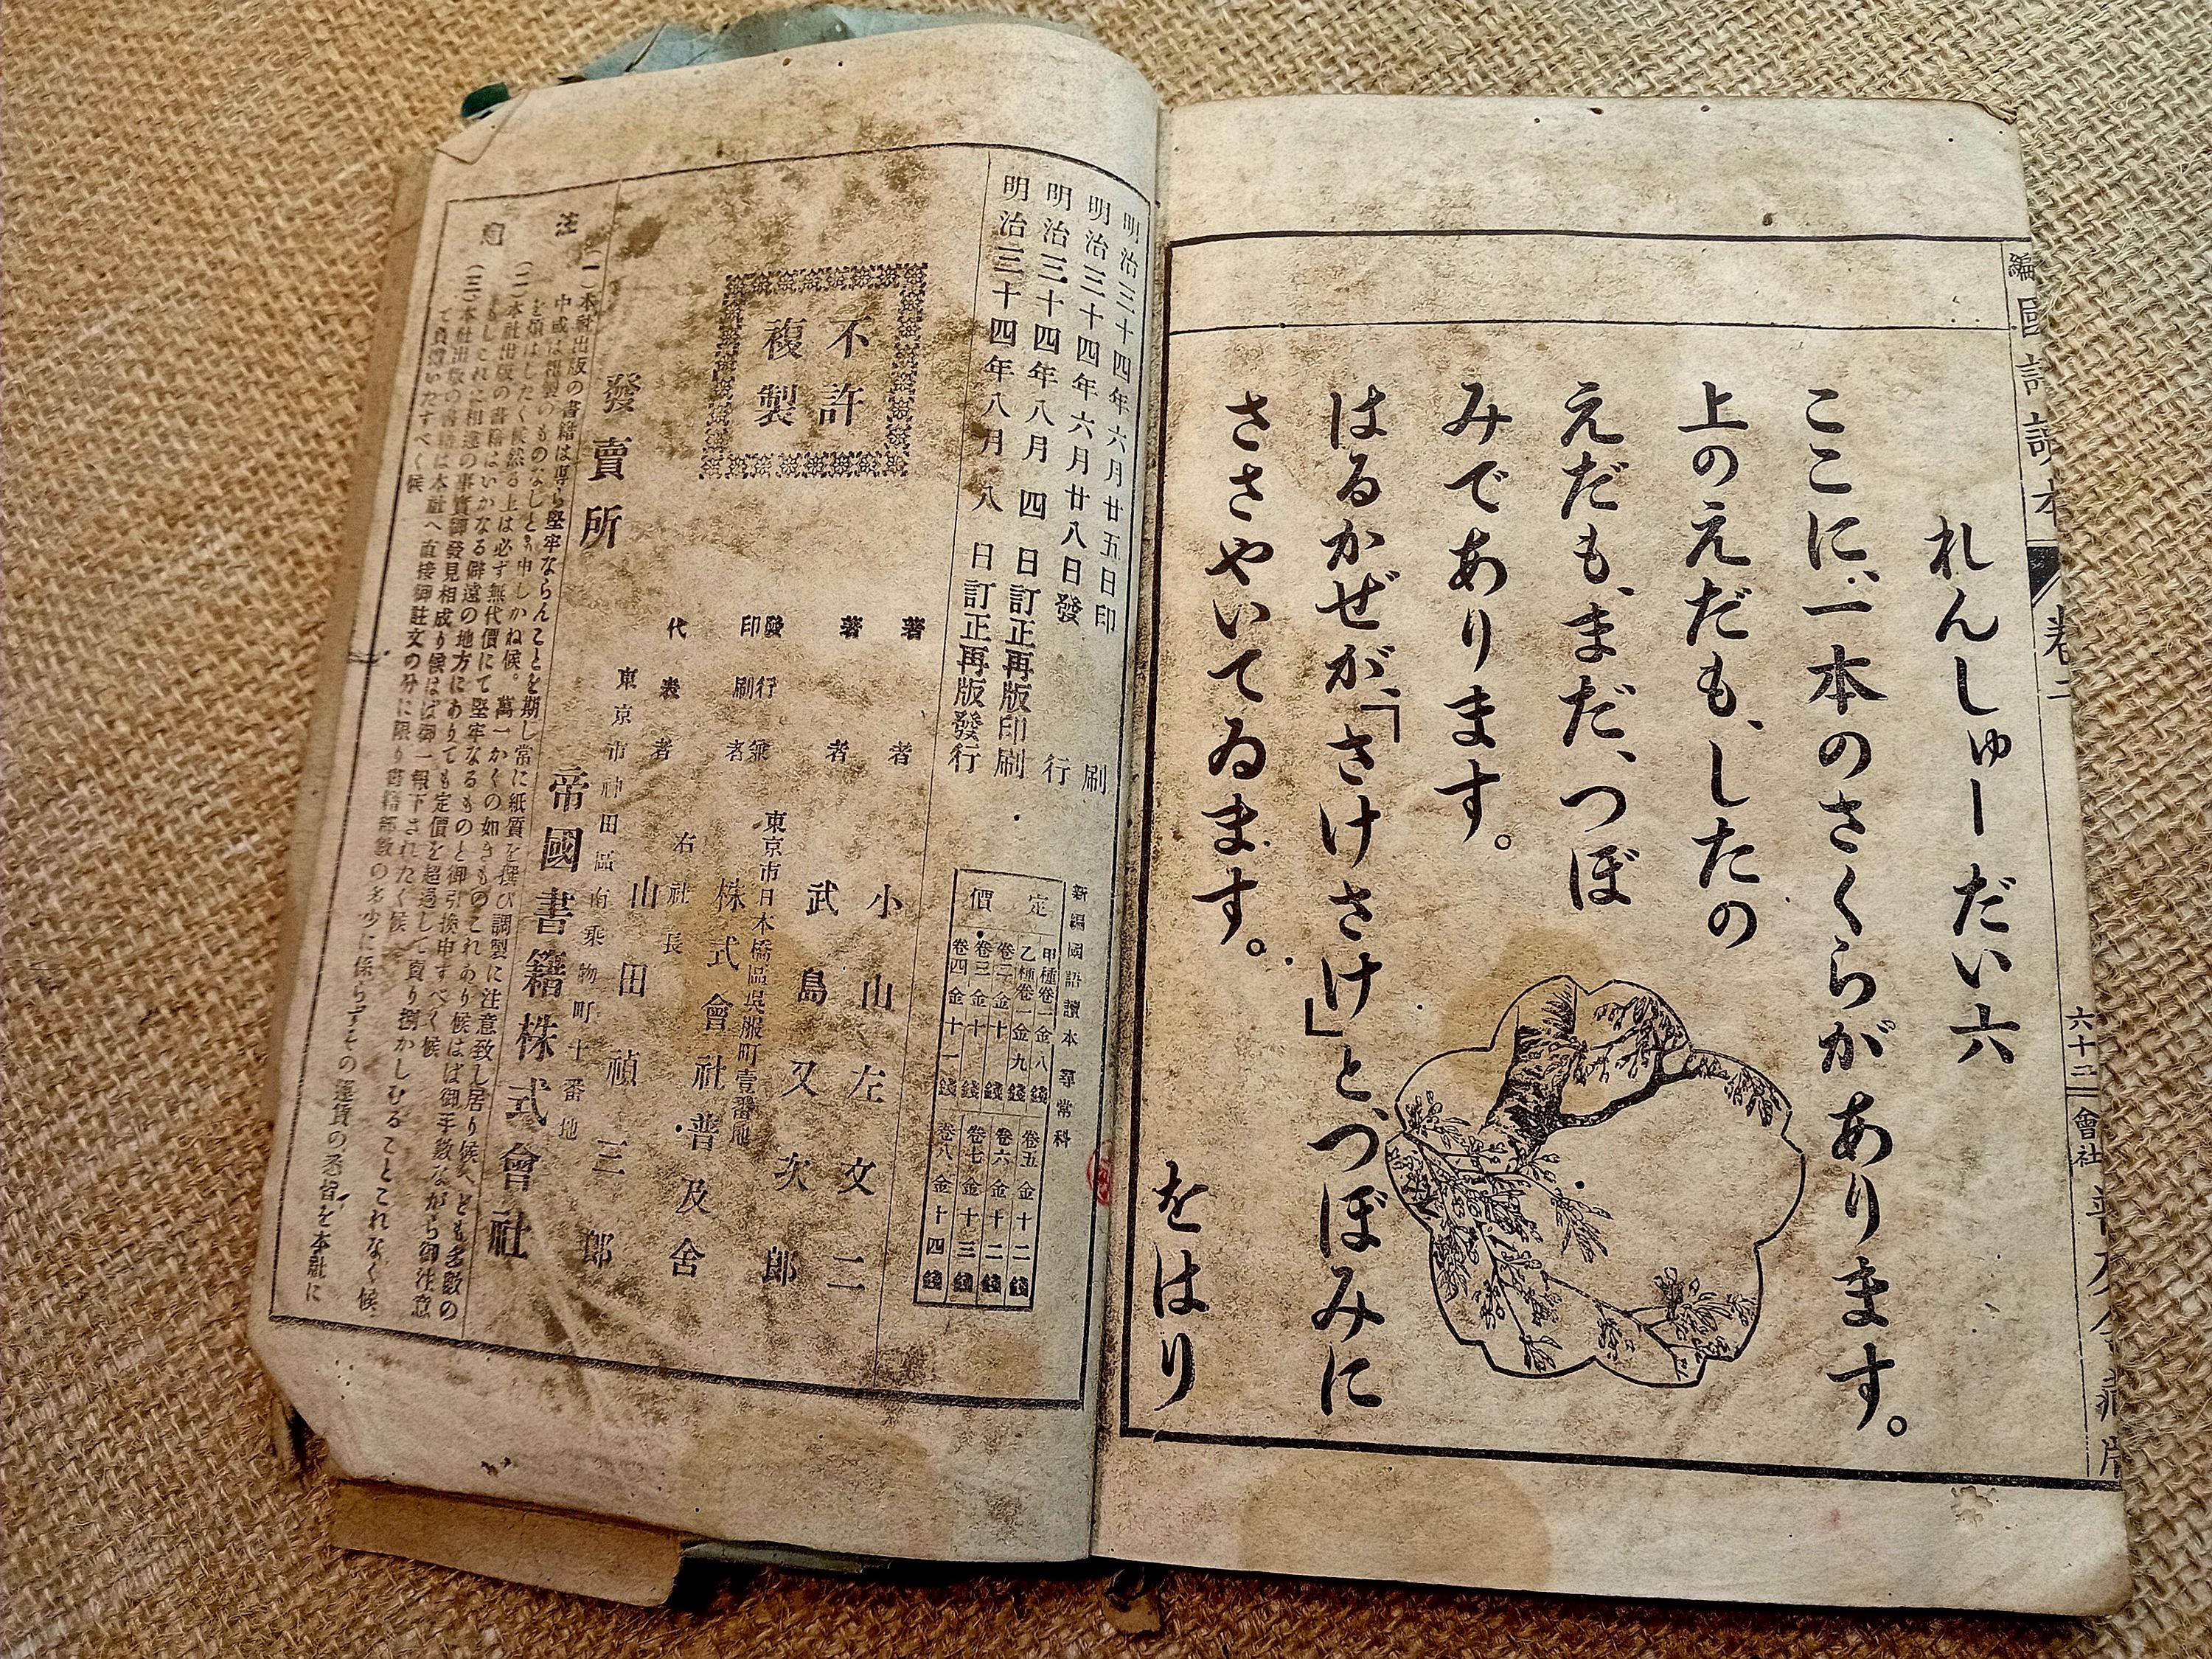 編國語讀本
卷二
六十二
會社
れんしゅーだい六
ここに、一本のさくらがあります。
上のえだも、したの
えだも、まだ、つぼ
みであります。
はるかぜが、「さけさけ」と、つぼみに
ささやいてゐます。
をはり
明治三十四年六月廿五日印刷
明治三十四年六月廿八日發行
明治三十四年八月四日訂正再版印刷
明治三十四年八月八日訂正再版發行
新編國語讀本尋常科
定價
甲種卷一金八錢
乙種卷一金九錢
卷二金十錢
卷三金十錢
卷四金十一錢
卷五金十二錢
卷六金十二錢
卷七金十三錢
卷八金十四錢
不許
複製
著者 小山左文二
著者 武島又次郎
東京市日本橋區呉服町壹番地
發行兼
印刷者 株式會社普及舍
右社長
代表者 山田禎三郎
東京市神田區南乘物町十番地
發賣所 帝國書籍株式會社
注意
(一)本社出版の書籍は專ら堅牢ならんことを期し常に紙質を撰び調製に注意致し居り候へども多數の
中或は粗製のものなしとも申しかね候。萬一かくの如きものこれあり候はば御手數ながら御注意
を煩はしたく候然る上は必ず無代價にて堅牢なるものと御引換申すべく候
(二)本社出版の書籍はいかなる僻遠の地方にありても定價を超過して賣り捌かしむることこれなく候
もしこれに相違の事實御發見相成り候はば御一報下されたく候
(三)本社出版の書籍は本社へ直接御註文の分に限り書籍部數の多少に係らずその運賃の
て負擔いたすべく候